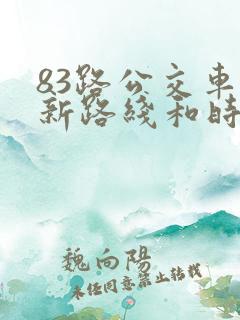 83路公交车
新路线和时
魏向阳
未经同意禁止转载